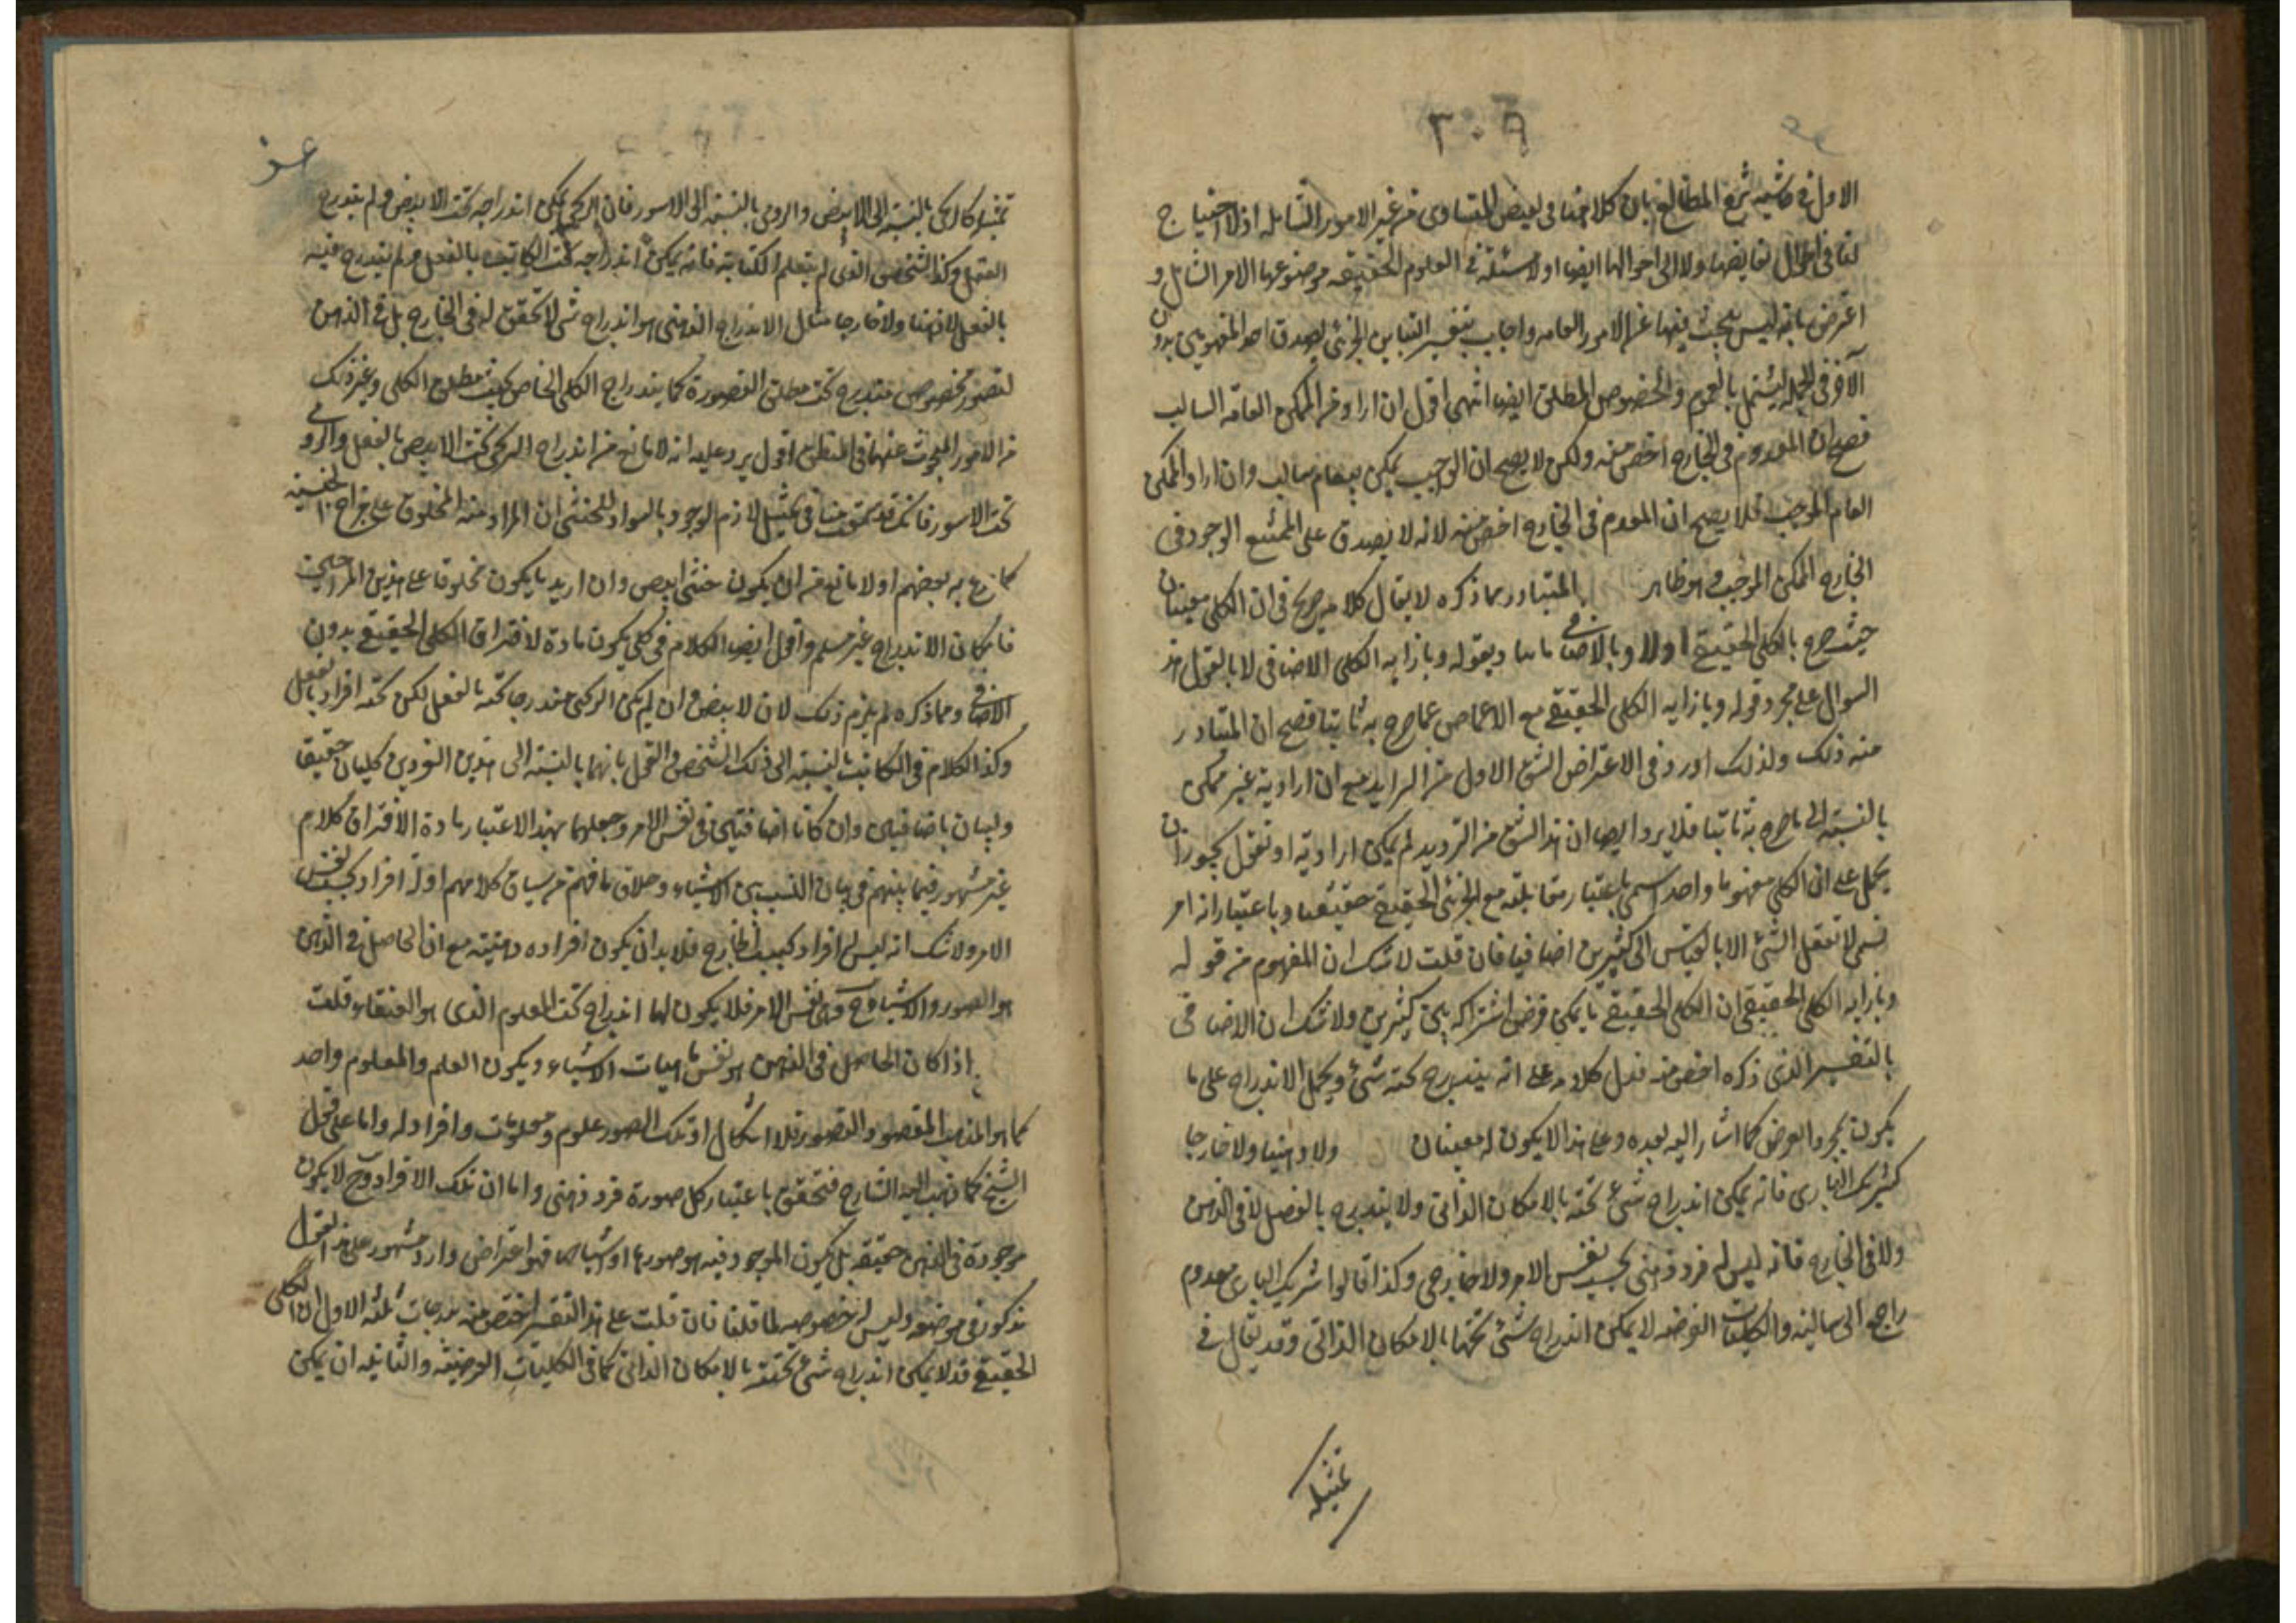 ٣٠٩
الاول في حاشية شرح المطالع بان كلامنا في نقيض المتساوى من غير الامور الشاملة اذ لا احتياج
لنا في احوال نقايضها ولا الى احوالها ايضا اولا مسئلة في العلوم الحقيقية موضوعها الامر الشامل و
اعترض بانه ليس يبحث فيها عن الامور العامه واجاب بتفسير التباين الجزئي بصدق احد المفهومين بدون
الآخر في الجملة ليشتمل بالعموم والخصوص المطلق ايضا انتهى اقول ان اراد من الممكن العامه السالب
فصح ان المعدوم في الخارج اخص منه ولكن لا يصح ان الواجب يمكن بعام سالب وان اراد الممكن
العام الموجب فلا يصح ان المعدوم في الخارج اخص منه لانه لا يصدق على الممتنع الوجود في
الخارج الممكن الموجب وهو ظاهر المتبادر مما ذكره لا يقال كلامه صريح في ان الكلي معنيان
حيث صرح بالكلي الحقيقي اولا وبالاضافي ويقوله وبازايه الكلي الاضافي لا بالقول هذ
السوال على مجرد قوله وبازايه الكلي الحقيقي مع الاغماض عما صرح به ثانيا فصح ان المتبادر
منه ذلك ولذلك اورد في الاعتراض الشق الاول من الترديد مع ان ارادته غير ممكن
بالنسبة الى ما صرح به ثانيا فلا يرد ايضا ان هذا الشق من الترديد لم يمكن ارادته او نقول يجوز ان
يحمل على ان الكلي مفهوما واحدا سمي باعتبار مقابلته مع الجزئي الحقيقي حقيقيا وباعتبار انه امر
نسبي لا تعقل الشئ الا بالقياس الى كثيرين اضافيا فان قلت لا شك ان المفهوم من قوله
وبازايه الكلي الحقيقي ان الكلي الحقيقي ما يمكن فرض اشتراكه بين كثيرين ولا شك ان الاضافي
بالتفسير الذى ذكره اخص منه فدل كلامه على انه يندرج تحته شئ ويحمل الاندراج على ما
يكون بمجرد الفرض كما اشار اليه بعده وعلى هذا لا يكون له معنيان ولا ذهنيا ولا خارجا
كشريك البارى فانه يمكن اندراج شئ تحته بالامكان الذاتي ولا يندرج بالفصل لا في الذهن
ولا في الخارج فانه ليس له فرد ذهني بحسب نفس الامر ولا خارجي وكذا قالوا شريك البارى معدوم
راجع الى سالبة والكليات الفرضيه لا يمكن اندراج شئ تحتها بالامكان الذاتي وقد يقال في
تمثيله
تمثيله كالزنجى بالنسبة الى الابيض والرومى بالنسبة الى الاسود فان الزنجى يمكن اندراجه تحت الابيض ولم يندرج
العقل وكذا الشخص الذى لم يتعلم الكتابة فانه يمكن اندراجه تحت الكاتب بالفعل ولم يندرج فيه
بالفعل لا ذهنا ولا خارجا مثال الاندراج الذهنى هو اندراج شئ لا تحقق له في الخارج بل في الذهن
لتصور مخصوص مندرج تحت مطلق التصورة كما يندراج الكلي الخاص تحت مطلق الكلي وغير ذلك
من الامور المبحوث عنها في المنطق اقول يرد عليه انه لا مانع من اندراج الزنجى تحت الابيض بالفعل والرومى
تحت الاسود فانك قد تحققت منا في تمثيل لازم الوجود بالسواد للحبشى ان المراد منه المخلوق على مزاج الحبشيه
كما زعم به بعضهم اولا مانع من ان يكون حبشى ابيض وان اريد ما يكون مخلوقا على هذين المزاجين
فامكان الاندراج غير مسلم واقول ايضا الكلام في كلي يكون مادة لافتراق الكلي الحقيقي بدون
الاضافي ومما ذكره لم يلزم ذلك لان الابيض وان لم يكن الزنجى مندرجا تحته بالفعل لكن تحته افراد بالفعل
وكذا الكلام في الكاتب بالنسبة الى ذلك الشخص والقول بانهما بالنسبة الى هذين الفردين كليان حقيقيا
وليسان باضافيين وان كانا اضافيين في نفس الامر وجعلهما بهذا الاعتبار مادة الافتراق كلام
غير مشهور فيما بينهم في بيان النسب بين الاشياء وخلاف ما فهم من سياق كلامهم اولا افراد بحسب نفس
الامر ولا شك انه ليس له افراد بحسب الخارج فلا بد ان يكون افراده ذهنيته مع ان الحاصل في الذهن
هو الصور والاشباح وهى نفس الامر فلا يكون لها اندراج تحت المعلوم الذى هو العنقاء قلت
اذا كان الحاصل في الذهن هو نفس ماهيات الاشياء ويكون العلم والمعلوم واحد
كما هو المذهب المقصور والمنصور فلا اشكال اذ تلك الصور علوم ومعلومات وافراد له واما على قول
الشيخ كما ذهب اليه الشارح فتحقق باعتبار كل صورة فرد ذهنى واما ان تلك الافراد ح لا يكون
موجودة في الذهن حقيقه بل يكون الموجود فيه هو صورها واشباحها فهو اعتراض وارد مشهور على هذا القول
مذكور في موضعه وليس له خصوصه لما قلنا فان قلت على هذا التفسير اخص منه بدرجات ثلثه الاول ان الكلي
الحقيقي قد لا يمكن اندراج شئ تحته بالامكان الذاتي كما في الكليات الفرضيه والثانيه ان يمكن